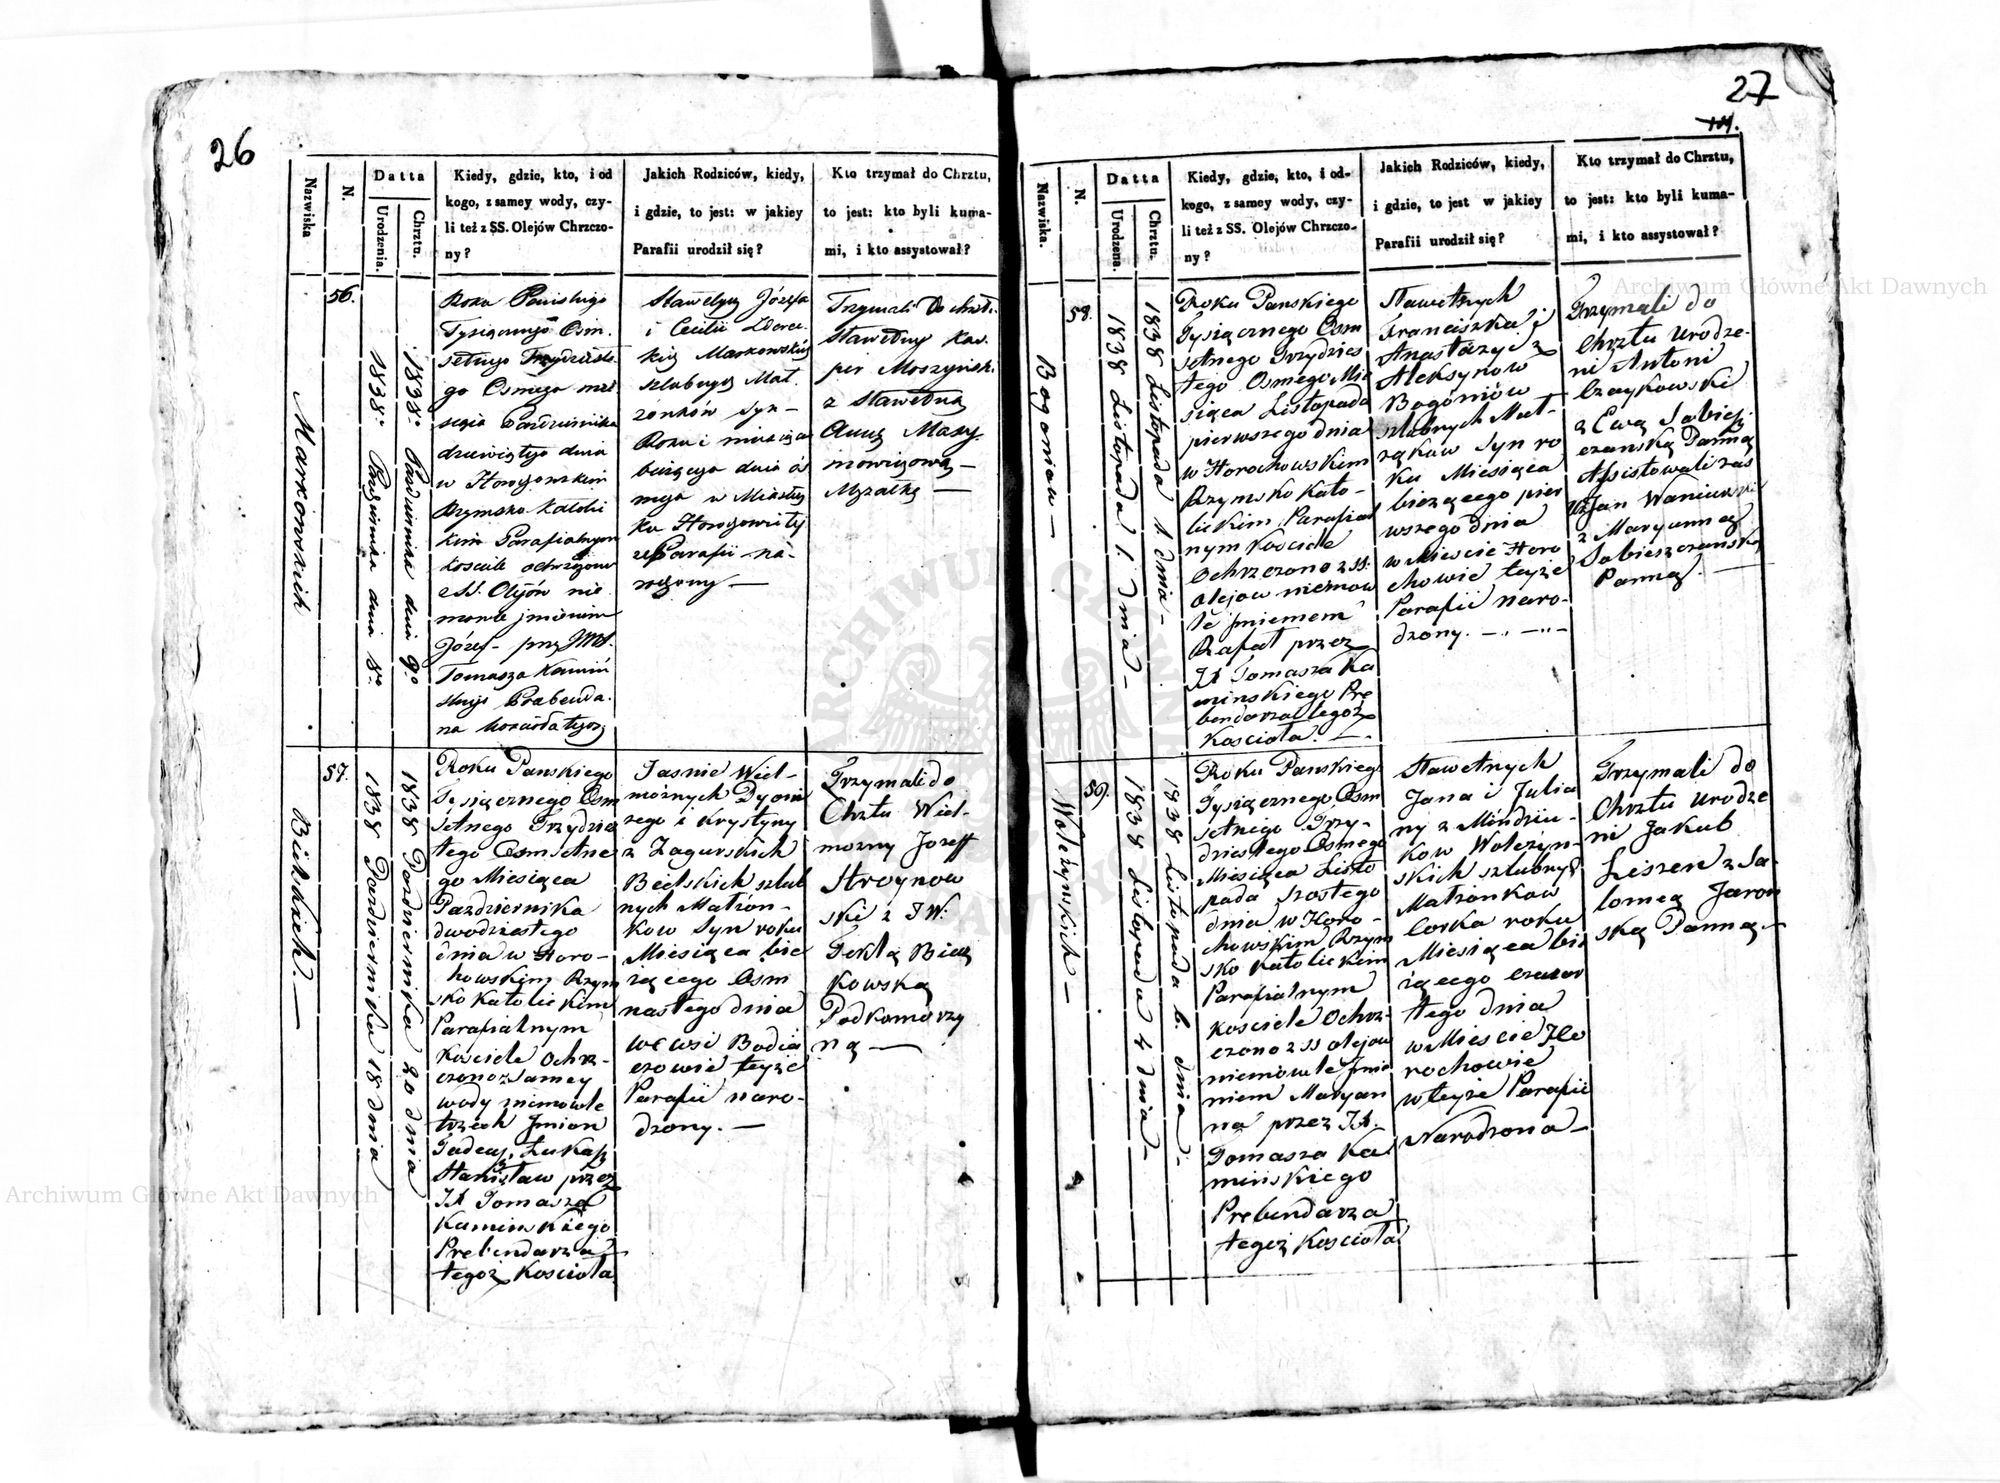 26
Nazwiska
N.
Datta
Urodzenia.
Chrztu.
Kiedy, gdzie, kto, i od
kogo, z samey wody, czy-
li też z SS. Olejów Chrzczo-
ny?
Jakich Rodziców, kiedy,
i gdzie, to jest: w jakiey
Parafii urodził się?
Kto trzymał do Chrztu,
to jest: kto byli kuma-
mi, i kto assystował?
Markowskich
56.
1838: dnia 8o
1838: dnia 9o
Roku Pańskiego
Tysiącznego Ośm-
setnego Trzydzieste-
go Osmego mie-
siąca Października
dziewiątego dnia
w Horochowskim
Rzymsko Katolic
kim Parafialnym
kosciele ochrzczono
z SS. Olejów nie
mowle jmieniem
Józef - przez JMX.
Tomasza Kamiń
skiego
na kościoła tegoż
Sławetnych Józefa
i Cecilii
kich Markowskich
szlubnych Mał-
żonków syn -
Roku i miesiąca
bieżącego dnia ós
mego w Miastecz
ku Horochowie tej
że Parafii na-
rodzony. —
Trzymali Do chrztu
Sławetny Kas-
per Moszyński
z Sławetną
Anną Mazy
mowiczową —
Mężatką —
Bielskich. —
57.
1838 Pazdziernika 18 dnia
1838 Pazdziernika 20 dnia
Roku Panskiego
Tysiącznego Osm
setnego Trzydzie
tego Osmsetne
go Miesiąca
Pazdziernika
dwodziestego
dnia w Horo-
howskim Rzym
sko Katolickim
Parafialnym
Kosciele Ochrz-
czono z Samey
wody niemowle
trzech Jmion
Tadeusz, Łukasz
Stanisław przez
JX Tomasza
Kaminskiego
Prebendarza
tegoż Kosciola
Jasnie Wiel-
możnych Dyoni
zego i Krystyny
z Zagurskich
Bielskich szlub
nych Małżon-
kow Syn roku
Miesiąca bie
żącego Osm
nastego dnia
we wsi Bodia
czowie teyże
Parafii naro-
dzony. —
Trzymali do
Chrztu Wiel-
mozny Jozeff
Stroynow
ski z JW:
Teklą Biesz
kowską
Podkomorzy
ną —
27
Nazwiska.
N.
Datta
Urodzena.
Chrztu.
Kiedy, gdzie, kto, i od-
kogo, z samey wody, czy-
li też z SS. Olejów Chrzczo-
ny?
Jakich Rodziców, kiedy,
i gdzie, to jest w jakiey
Parafii urodził się?
Kto trzymał do Chrztu,
to jest: kto byli kuma-
mi, i kto assystował?
Bogoniow —
58.
1838 Listopada 1. dnia -
1838 Listopada 1. dnia -
Roku Panskiego
Tysiącznego Osm
setnego Trzydzies
tego Osmego Mie
siąca Listopada
pierwszego dnia
w Horochowskim
Rzymsko Kato-
lickim Parafial
nym Kosciele
Ochrzczono z SS.
Olejow niemow
le Jmieniem
Rafał przez
JX Tomasza Ka
minskiego Pre
bendarza tegoż
Kosciola. —
Sławetnych
Franciszka i
Anastazyi z
Aleksynow
Bogoniów
szlubnych Mał-
żąkow Syn ro
ku Miesiąca
bieżącego pier
wszego dnia
w Miescie Horo
chowie teyże
Parafii naro-
dzony. —
Trzymali do
Chrztu Urodze-
ni Antoni
Czaykowski
z Ewą Sobiesz
czanską Panną
Assistowali zas
Ur: Jan Waniewski
z Maryanną
Sobieszczanską
Panną. —
Wolczynskich —
59.
1838 Listopada 4 dnia -
1838 Listopada 6. dnia -
Roku Panskieg
Tysiącznego Osm
setnego Trzy-
dziestego Osmego
Miesiąca Listo
pada szostego
dnia w Horo-
chowskim Rzym
sko Katolickim
Parafialnym
Kosciele Ochrz-
czono z SS olejow
niemowle Jmie
niem Maryan
na przez JX.
Tomasza Ka
minskiego
Prebendarza
tegoż Kosciola
Sławetnych
Jana i Julia
ny z Mindziu-
kow Wolczyn-
skich szlubnych
Małżonkow
Corka roku
Miesiąca bie
żącego czwar
tego dnia
w Miescie Ho
rochowie
w teyże Parafii
Narodzona —
Trzymali do
Chrztu Urodze
ni Jakub
Leszen z Sa-
lomeą Jaron
ską Panną —
Archiwum Główne Akt Dawnych
Archiwum Główne Akt Dawnych